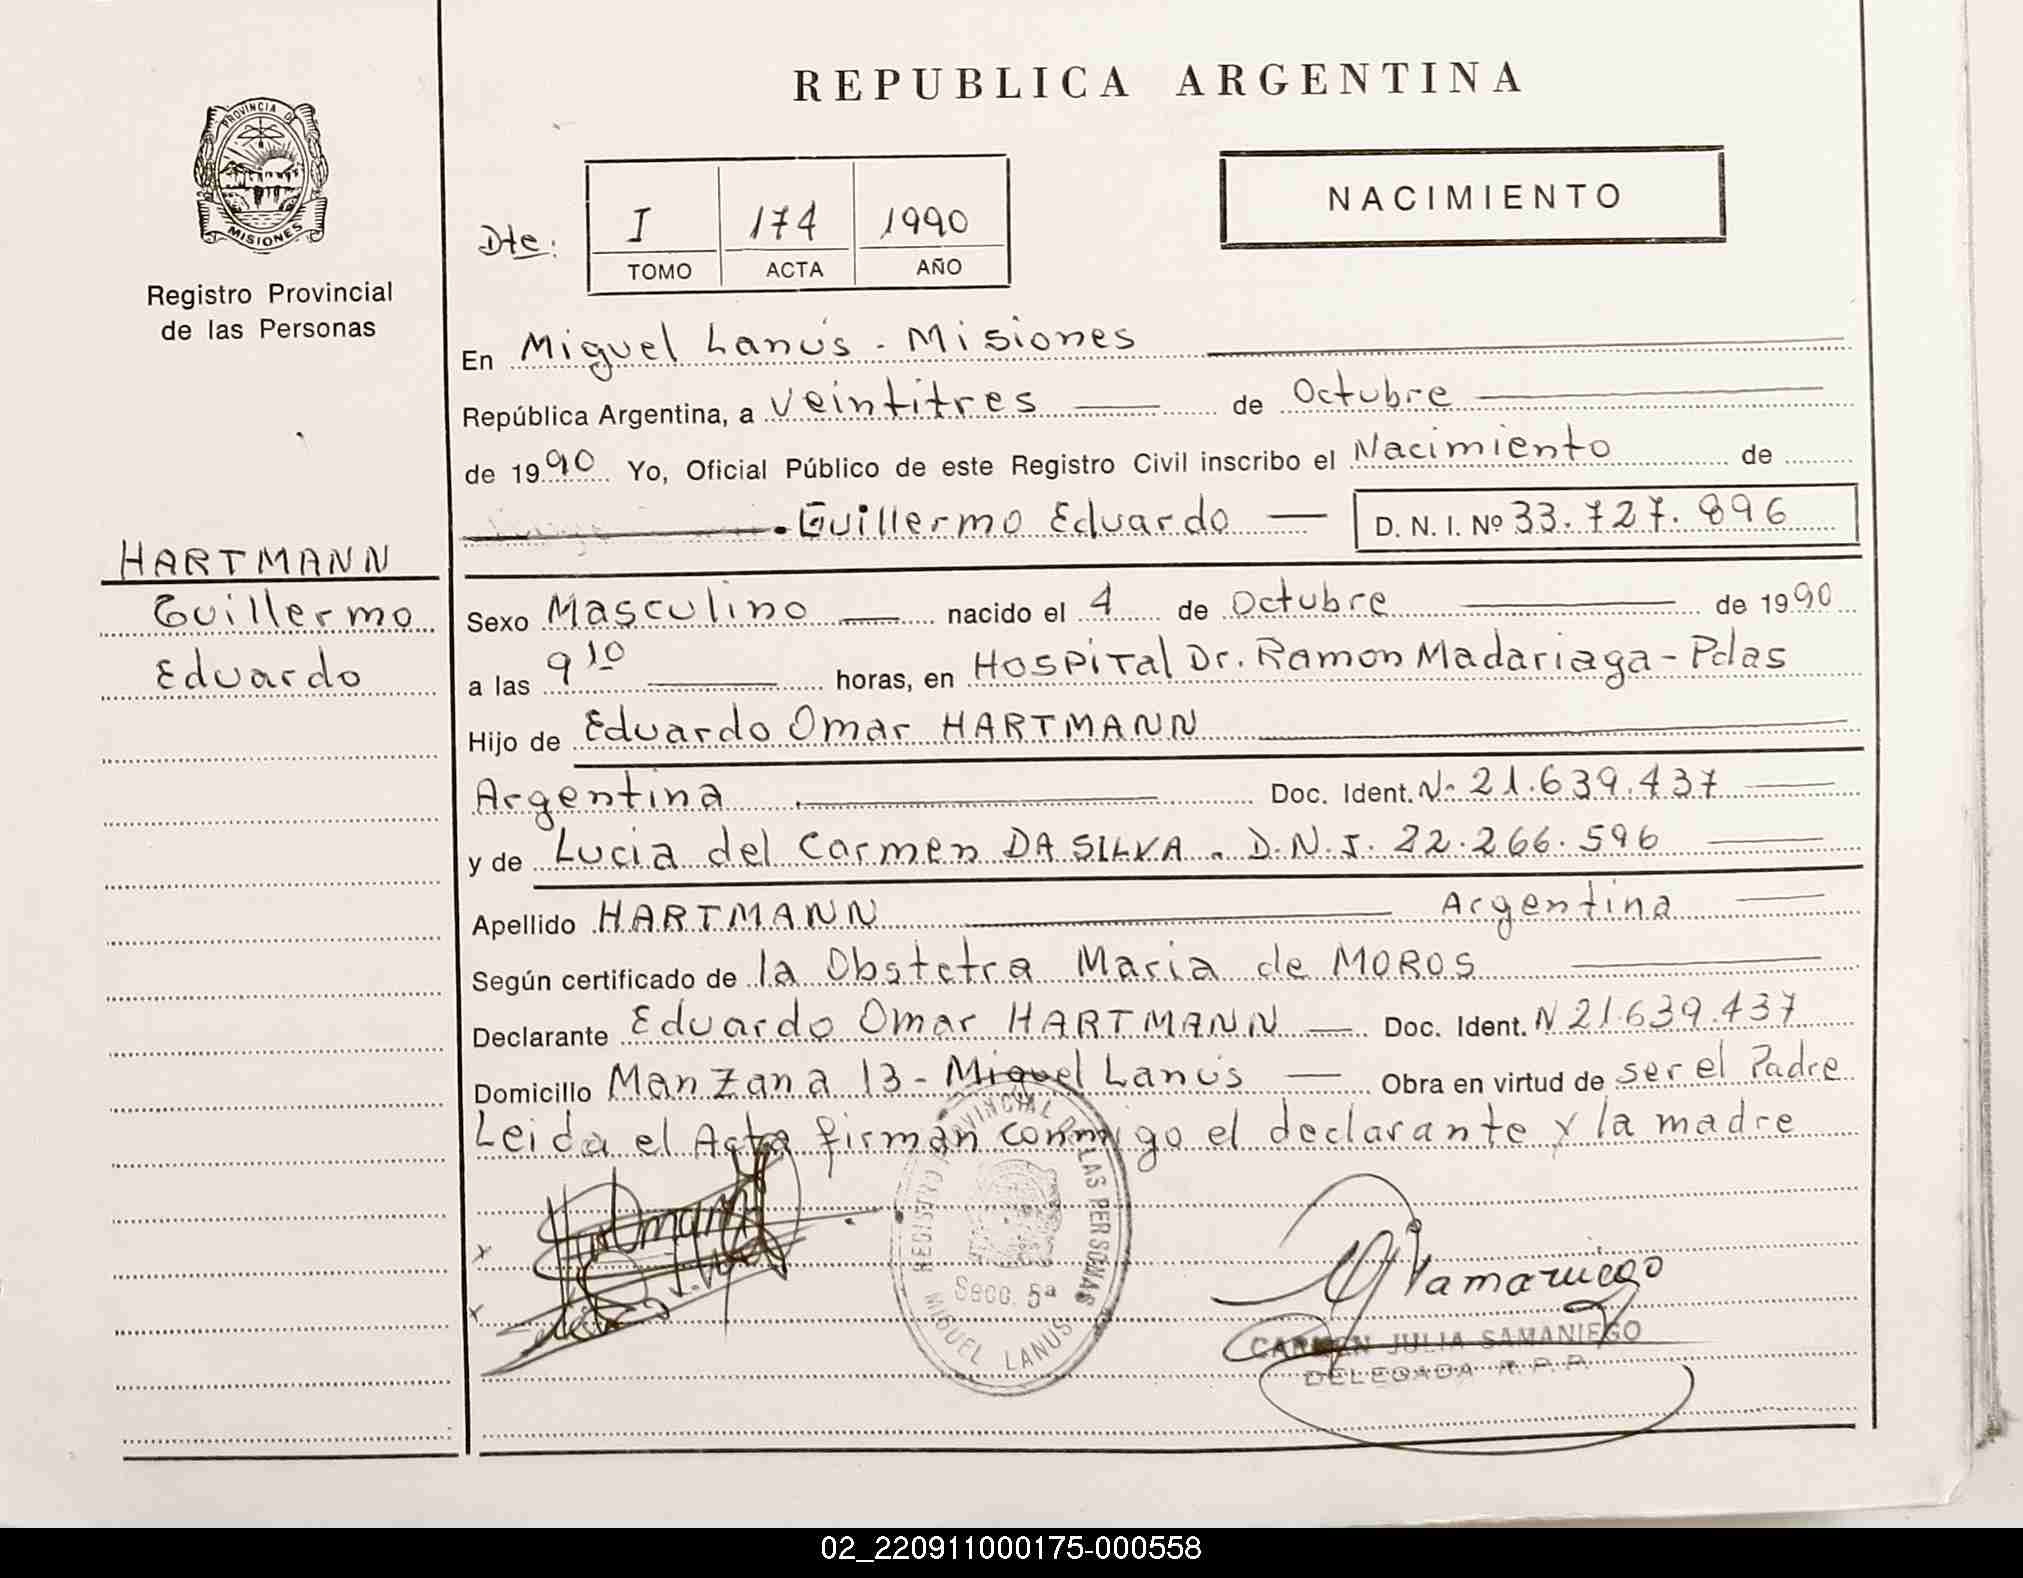 REPUBLICA ARGENTINA
PROVINCIA DE
MISIONES
Registro Provincial
de las Personas
NACIMIENTO
Dte: I 174 1990
TOMO ACTA AÑO
En Miguel Lanús - Misiones
República Argentina, a veintitres de Octubre
de 1990 Yo, Oficial Público de este Registro Civil inscribo el Nacimiento de
Guillermo Eduardo D. N. I. Nº 33.727.896
HARTMANN
Guillermo
Eduardo
Sexo Masculino nacido el 4 de Octubre de 1990
a las 9 10 horas, en Hospital Dr. Ramon Madariaga - Pdas
Hijo de Eduardo Omar HARTMANN
Argentina Doc. Ident. Nº 21.639.437
y de Lucia del Carmen DA SILVA. D.N.I. 22.266.596
Apellido HARTMANN Argentina
Según certificado de la Obstetra Maria de MOROS
Declarante Eduardo Omar HARTMANN Doc. Ident. N 21.639.437
Domicilio Manzana 13 - Miguel Lanús Obra en virtud de ser el Padre
Leida el Acta firman conmigo el declarante y la madre
REGISTRO PROVINCIAL DE LAS PERSONAS
Secc. 5ª
MIGUEL LANUS
Hartmann
Samaniego
CARMEN JULIA SAMANIEGO
DELEGADA R.P.P.
02_220911000175-000558